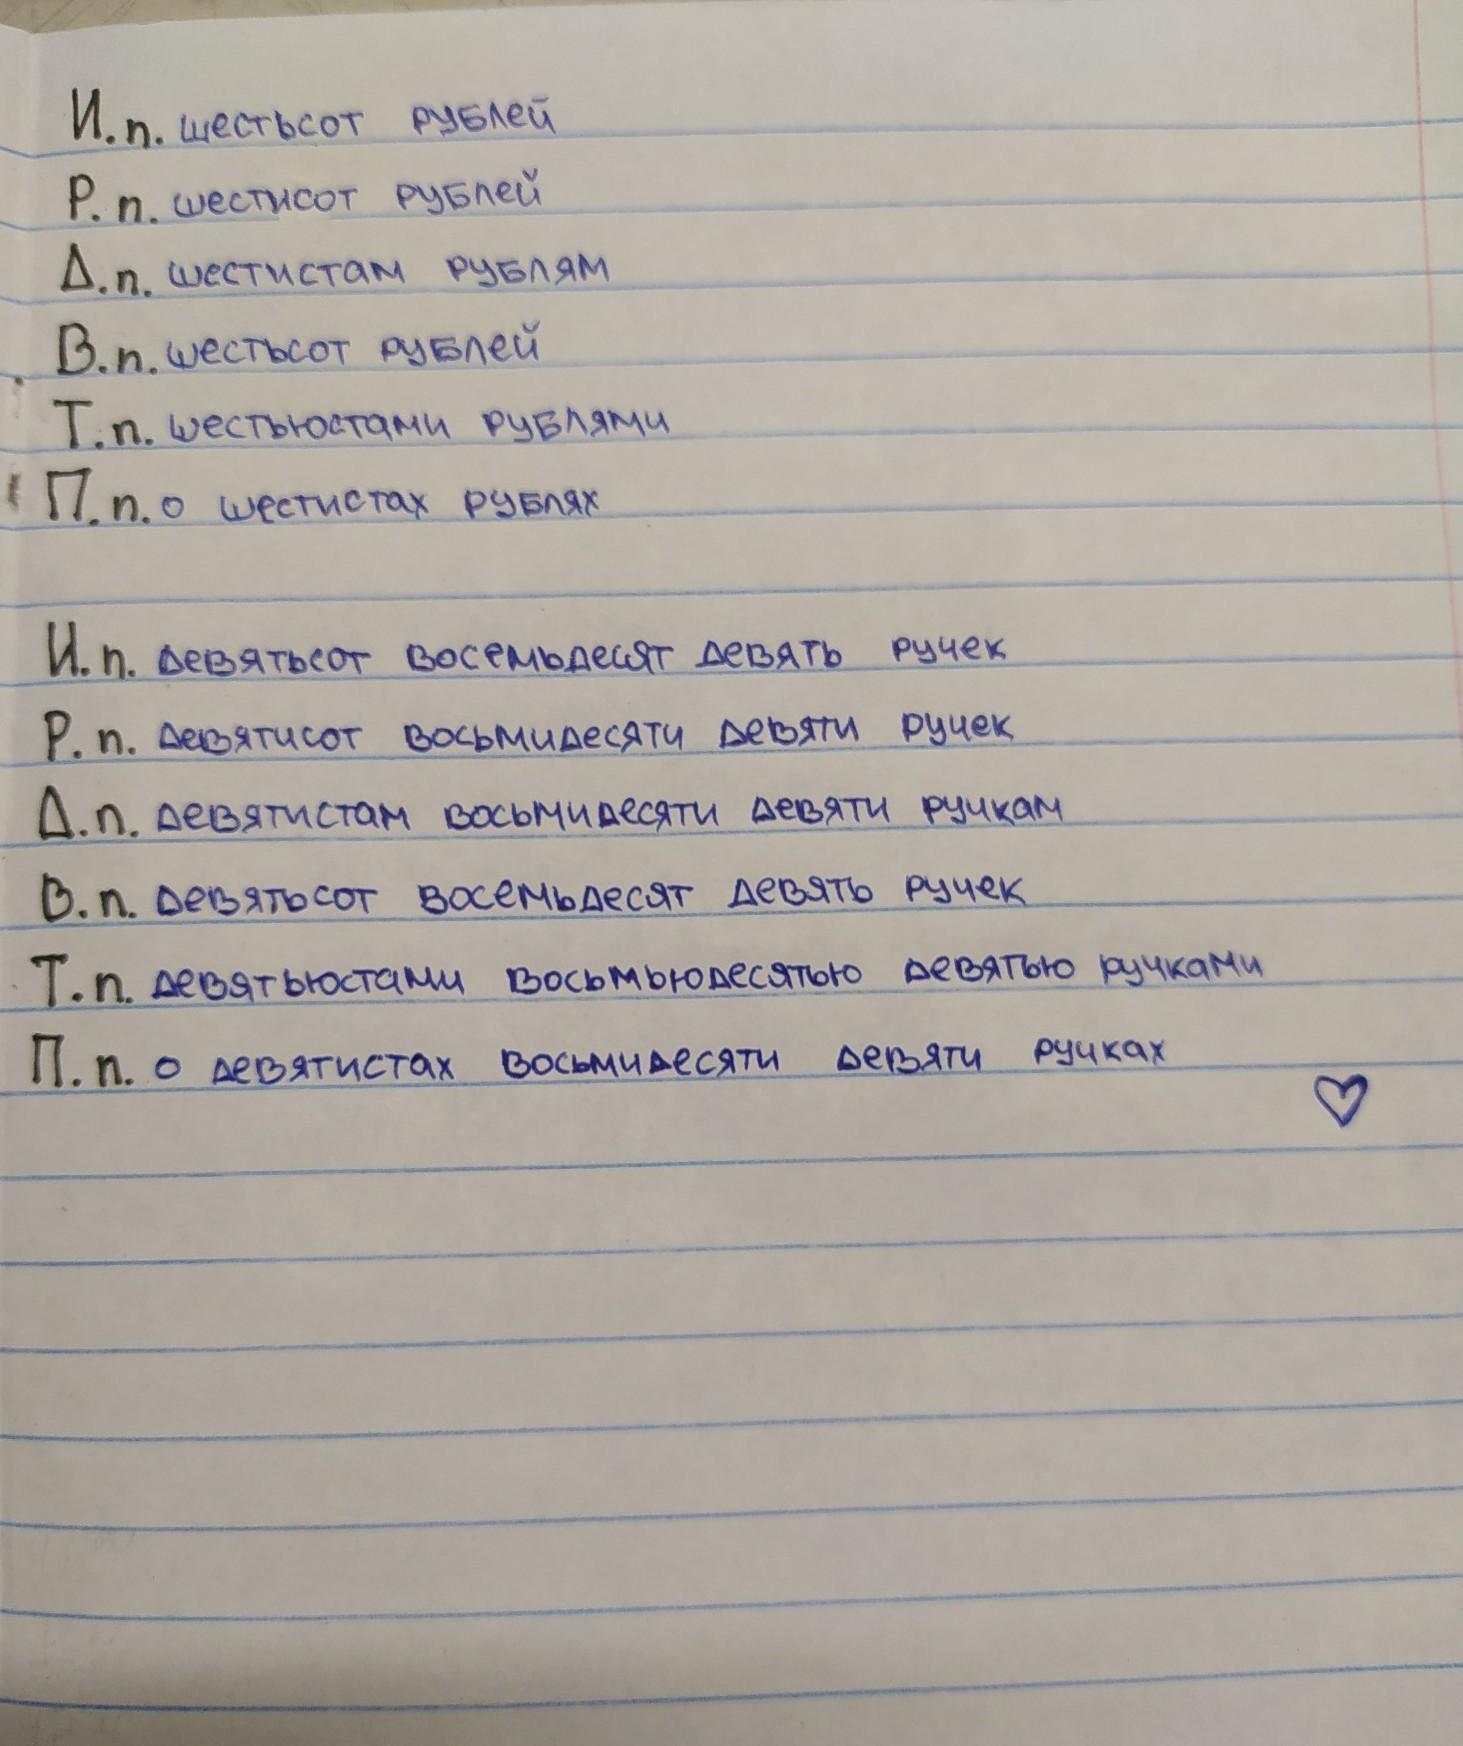 И.п. шестьсот рублей
Р.п. шестисот рублей
Д.п. шестистам рублям
В.п. шестьсот рублей
Т.п. шестьюстами рублями
П.п. о шестистах рублях
И.п. девятьсот восемьдесят девять ручек
Р.п. девятисот восьмидесяти девяти ручек
Д.п. девятистам восьмидесяти девяти ручкам
В.п. девятьсот восемьдесят девять ручек
Т.п. девятьюстами восьмьюдесятью девятью ручками
П.п. о девятистах восьмидесяти девяти ручках